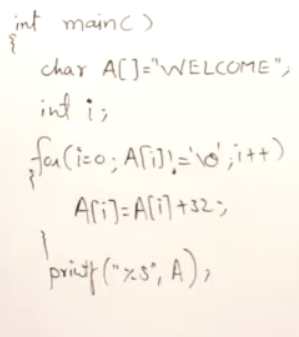 int main()
{
char A[]="WELCOME";
int i;
for(i=0; A[i]!='\0'; i++)
{
A[i]=A[i]+32;
}
printf("%s", A);